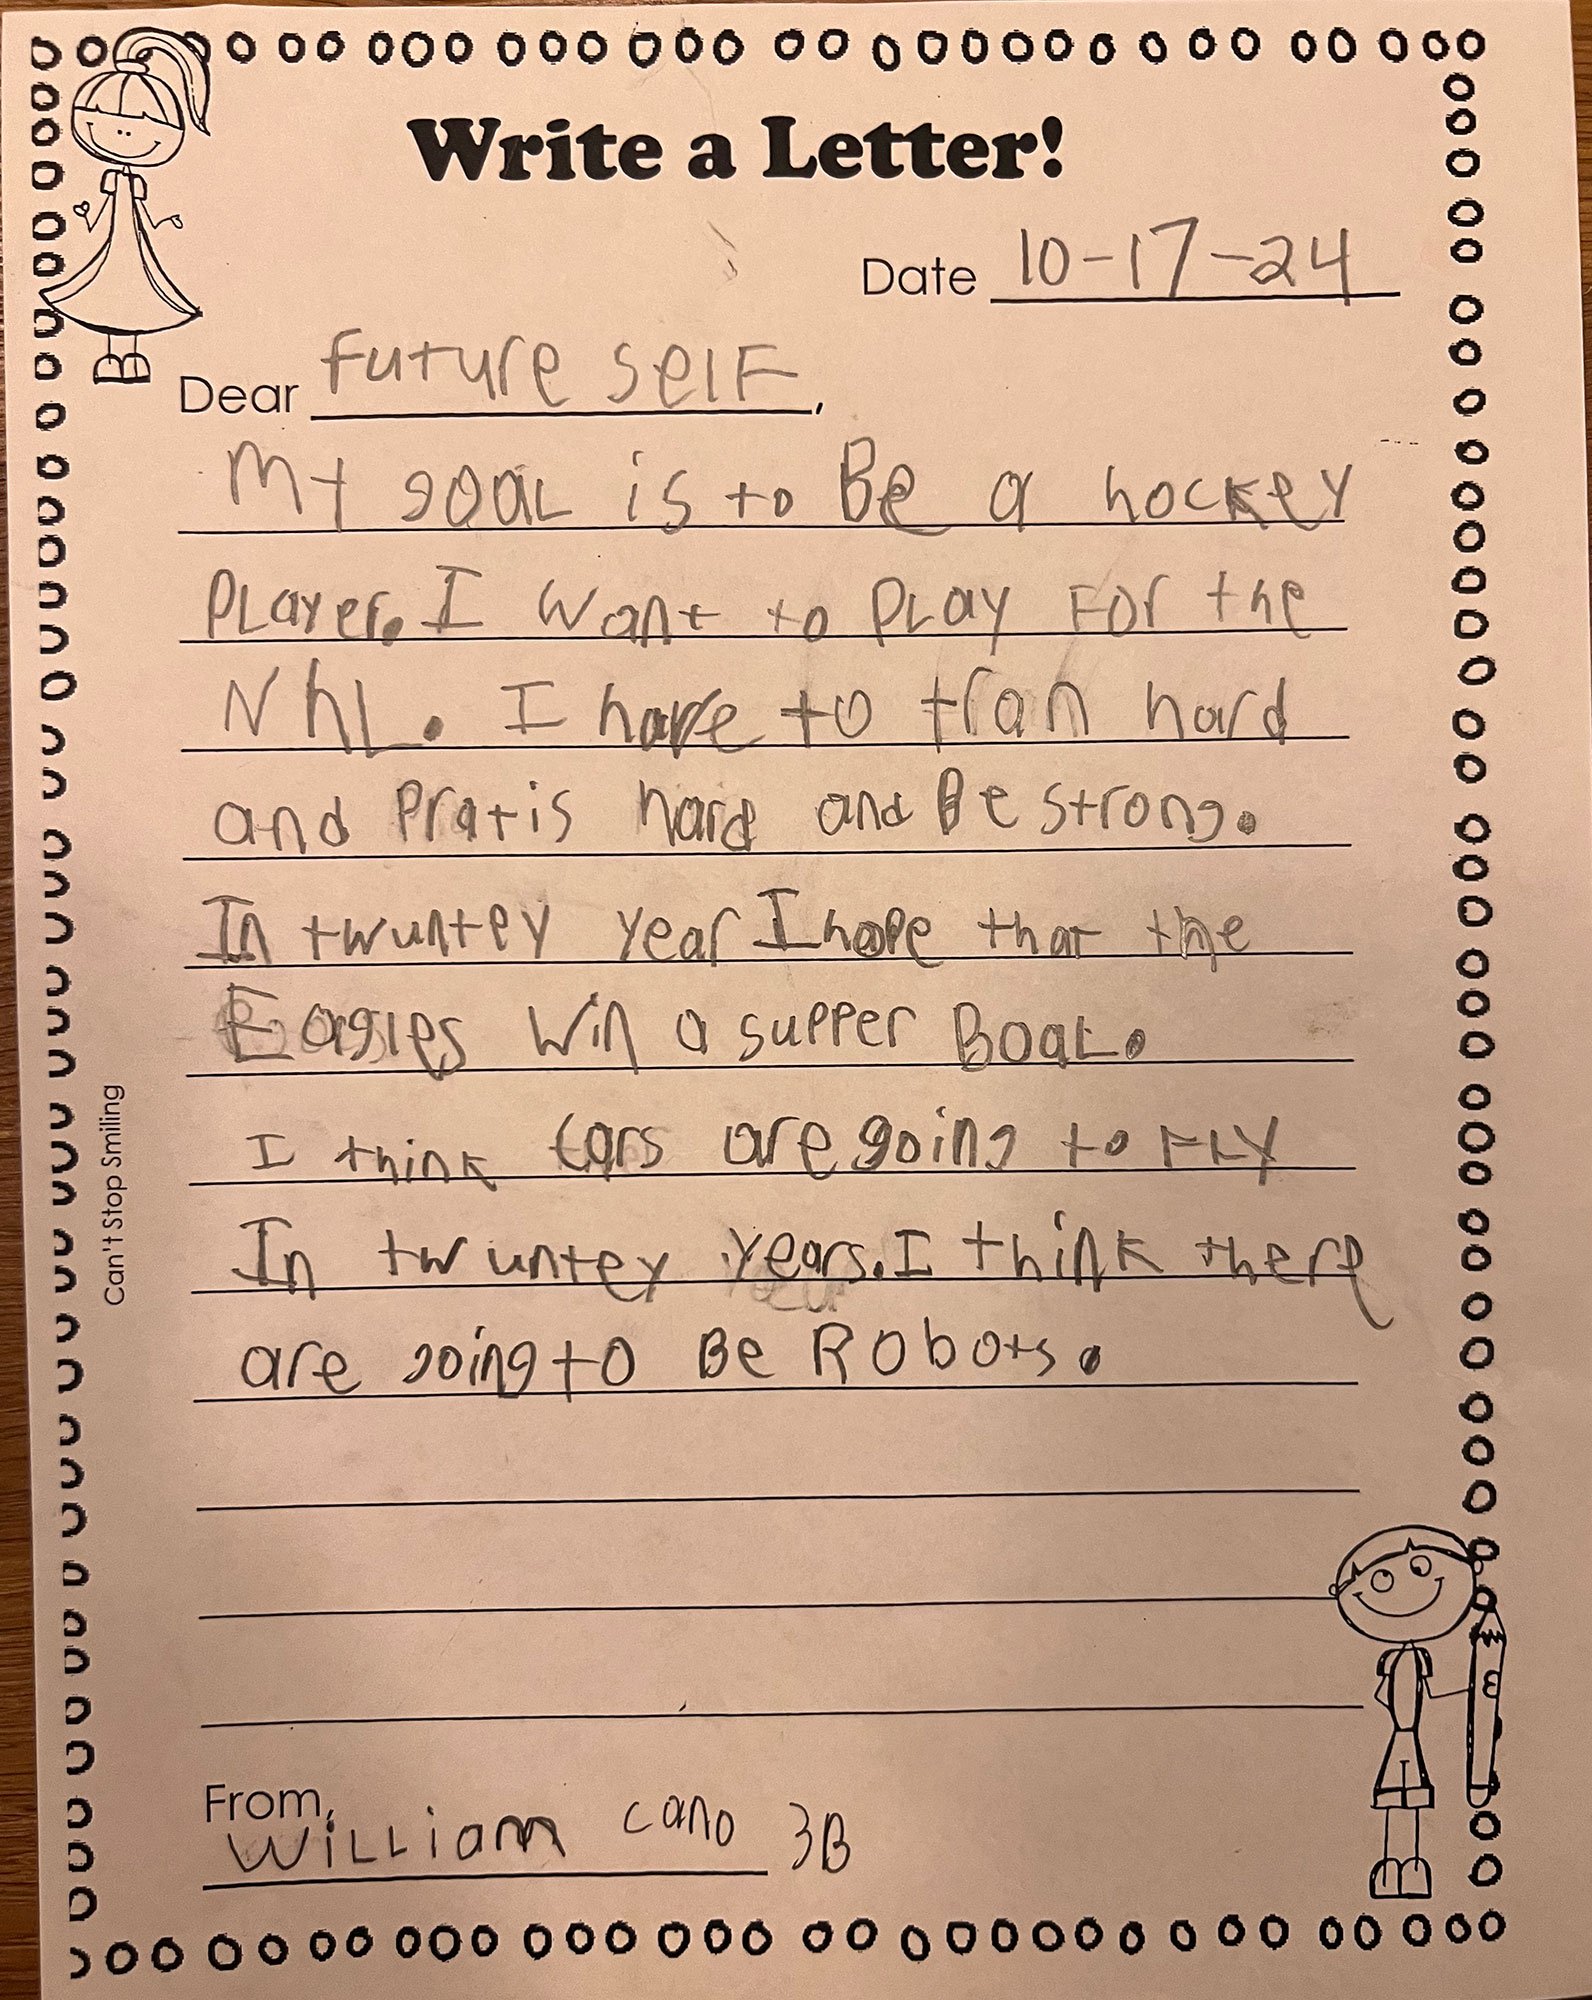 Write a Letter!
Date 10-17-24
Dear future self,
My goal is to Be a hockey
Player. I want to Play For the
NhL. I have to tran hard
and Pratis hard and Be strong.
In twuntey year I hope that the
Eagles win a supper Boal.
I think cars are going to FLY
In twuntey years. I think there
are going to Be Robots.
Can't Stop Smiling
From,
William cano 3B